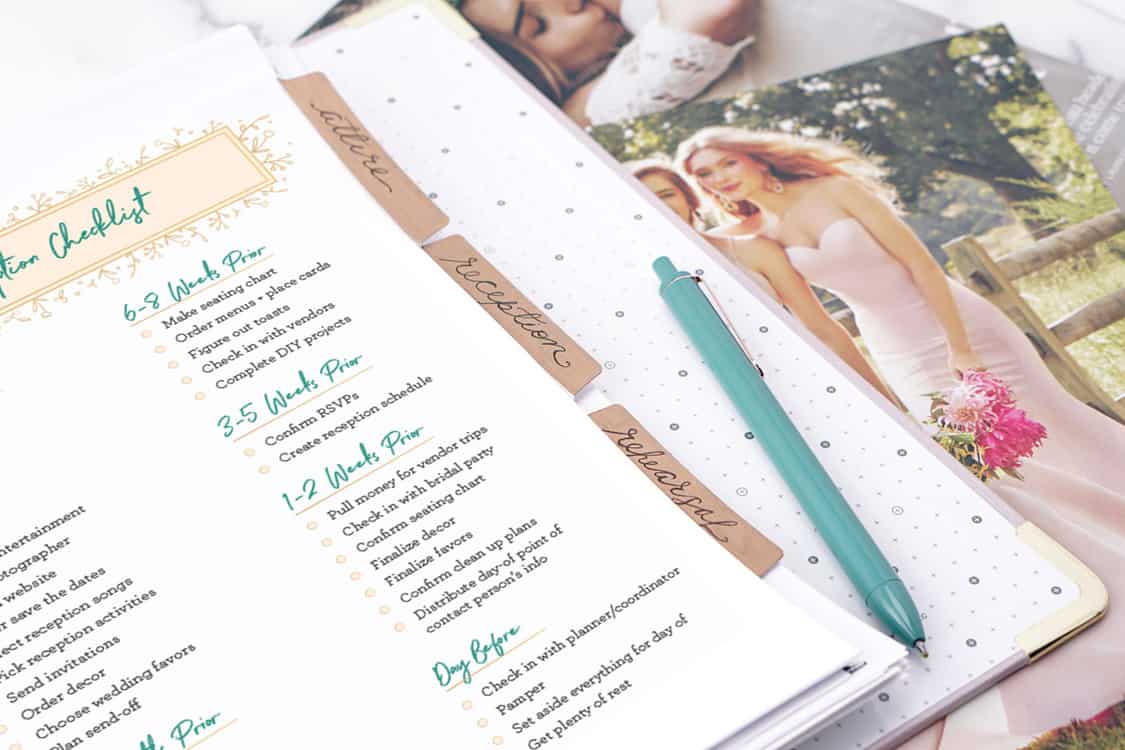 Checklist
ntertainment
otographer
website
save the dates
reception songs
Pick reception activities
Send invitations
Order decor
Choose wedding favors
Plan send-off
Prior
6-8 Weeks Prior
Make seating chart
Order menus + place cards
Figure out toasts
Check in with vendors
Complete DIY projects
3-5 Weeks Prior
Confirm RSVPs
Create reception schedule
1-2 Weeks Prior
Pull money for vendor trips
Check in with bridal party
Confirm seating chart
Finalize decor
Finalize favors
Confirm clean up plans
Distribute day-of point of
contact person's info
Day Before
Check in with planner/coordinator
Pamper
Set aside everything for day of
Get plenty of rest
attire
reception
rehearsal